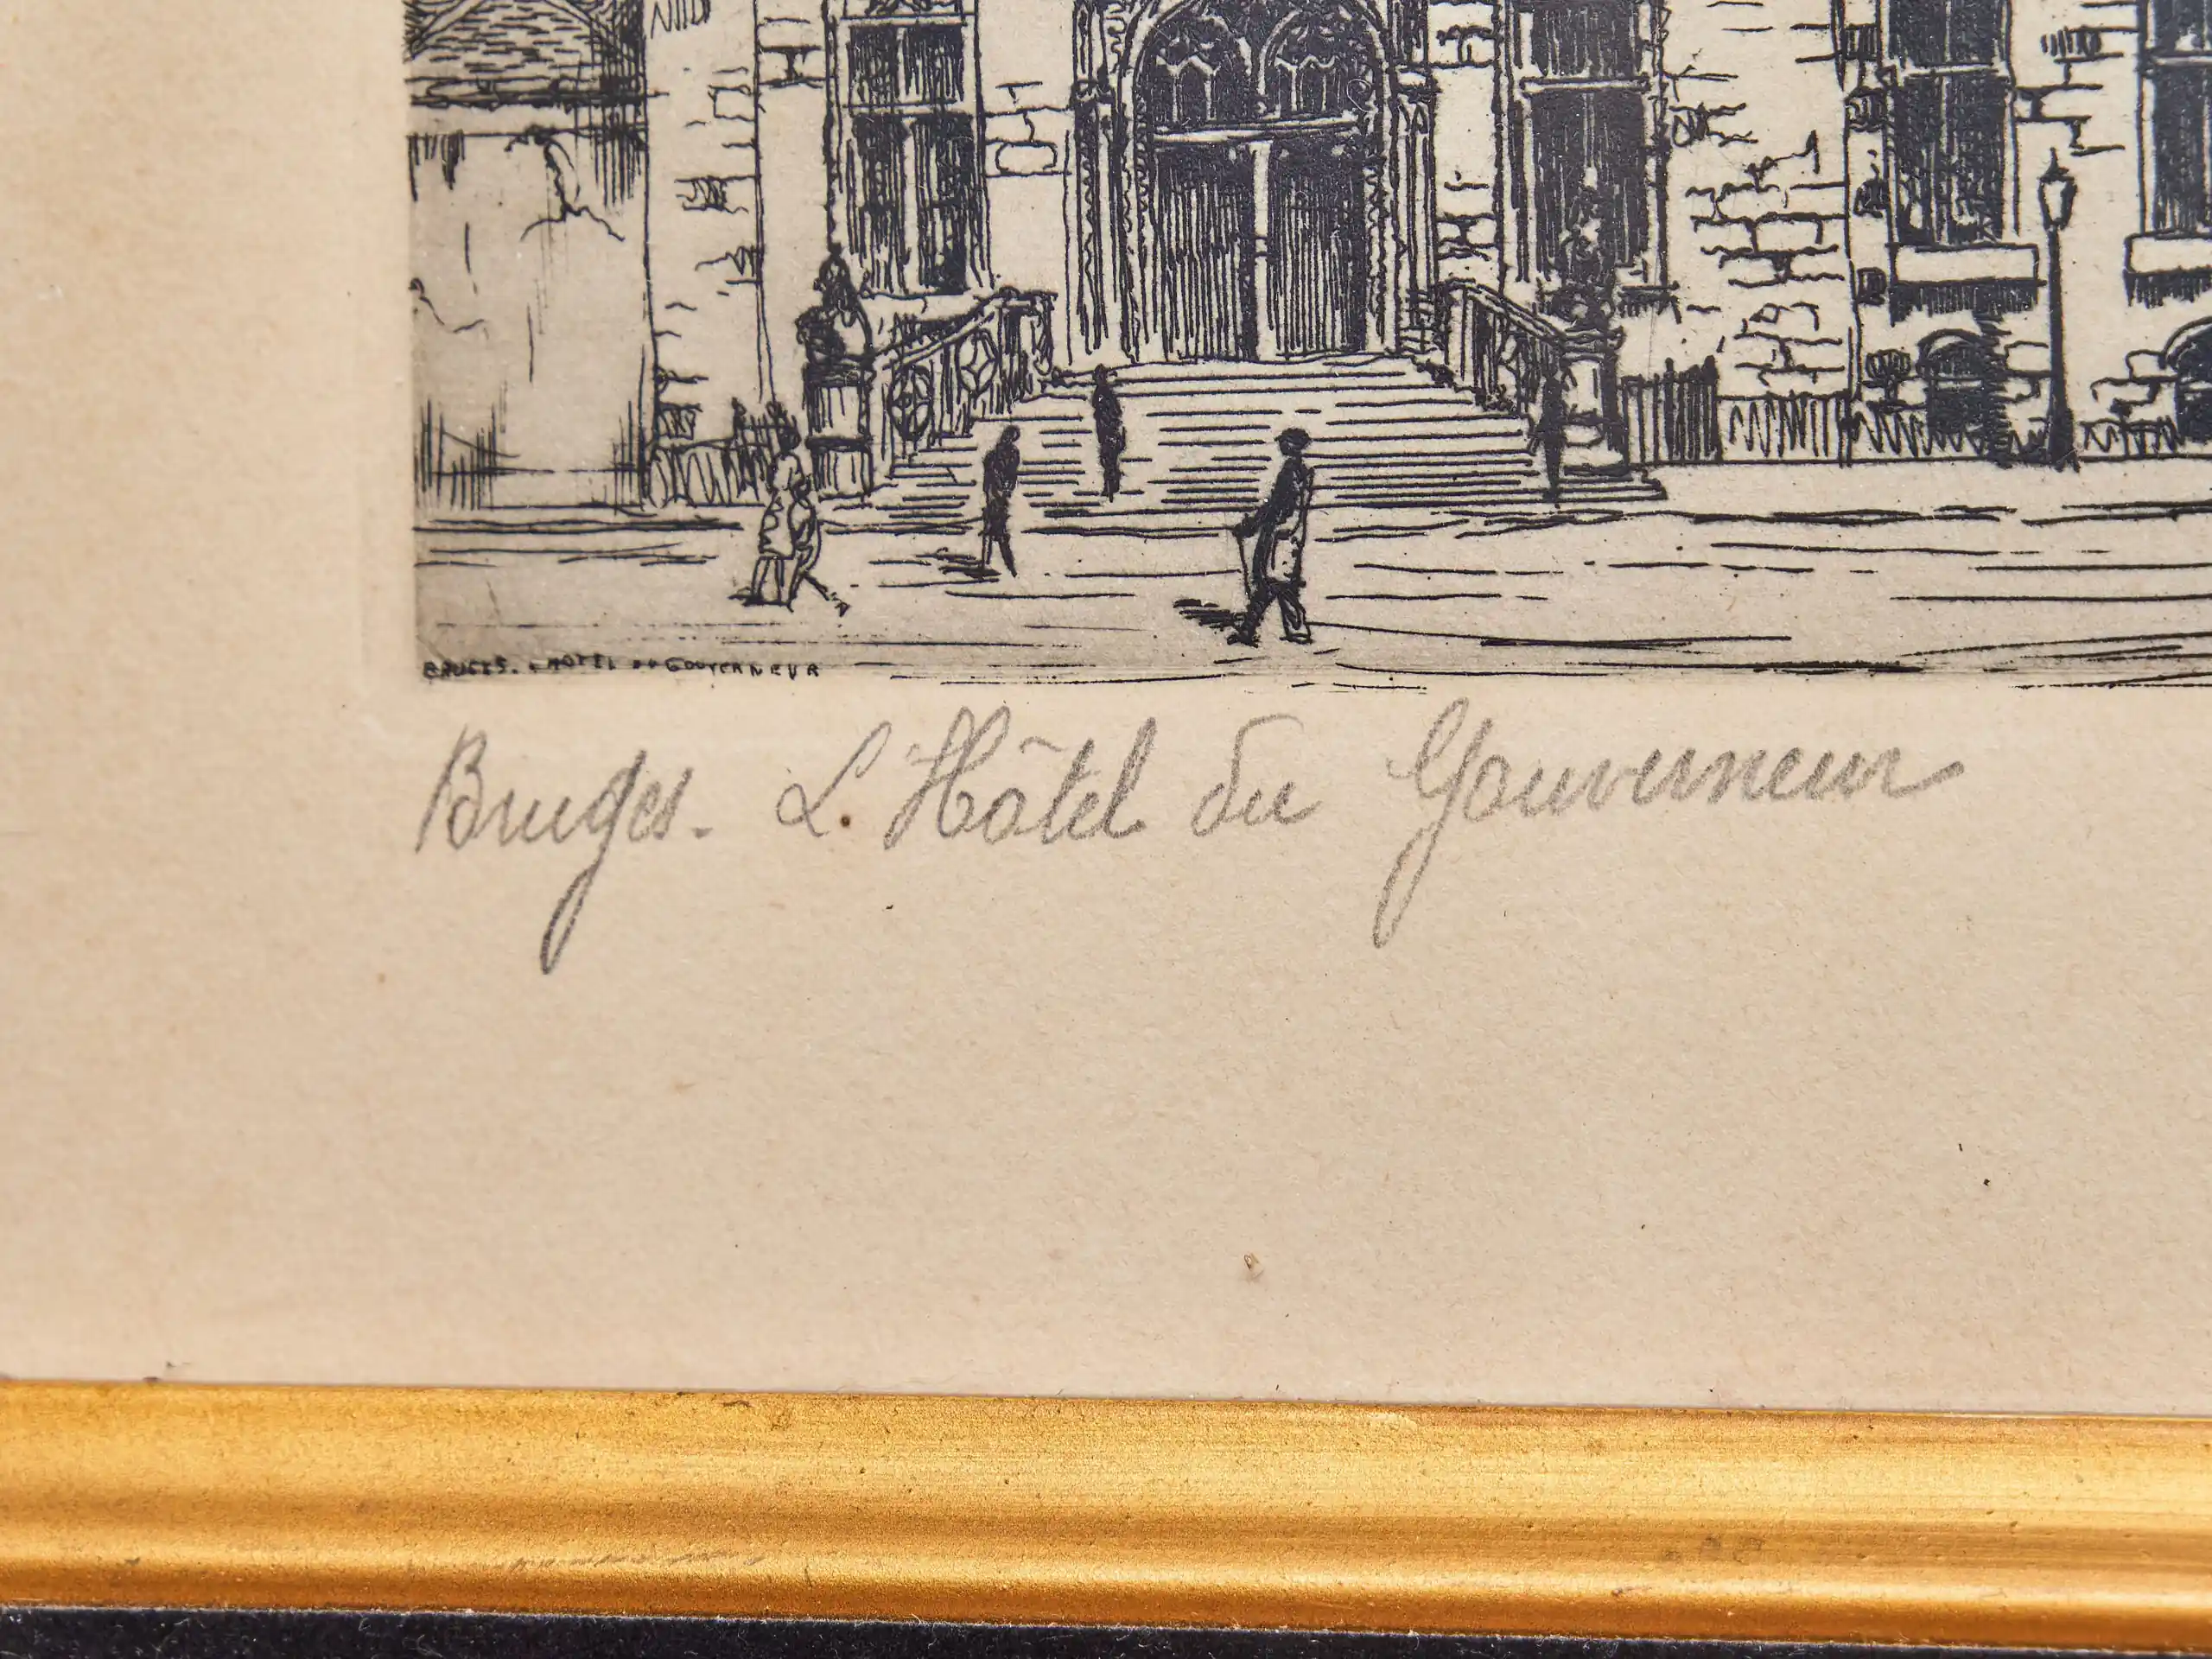 BRUGES. L'HOTEL DU GOUVERNEUR
Bruges. L. Hôtel du Gouverneur